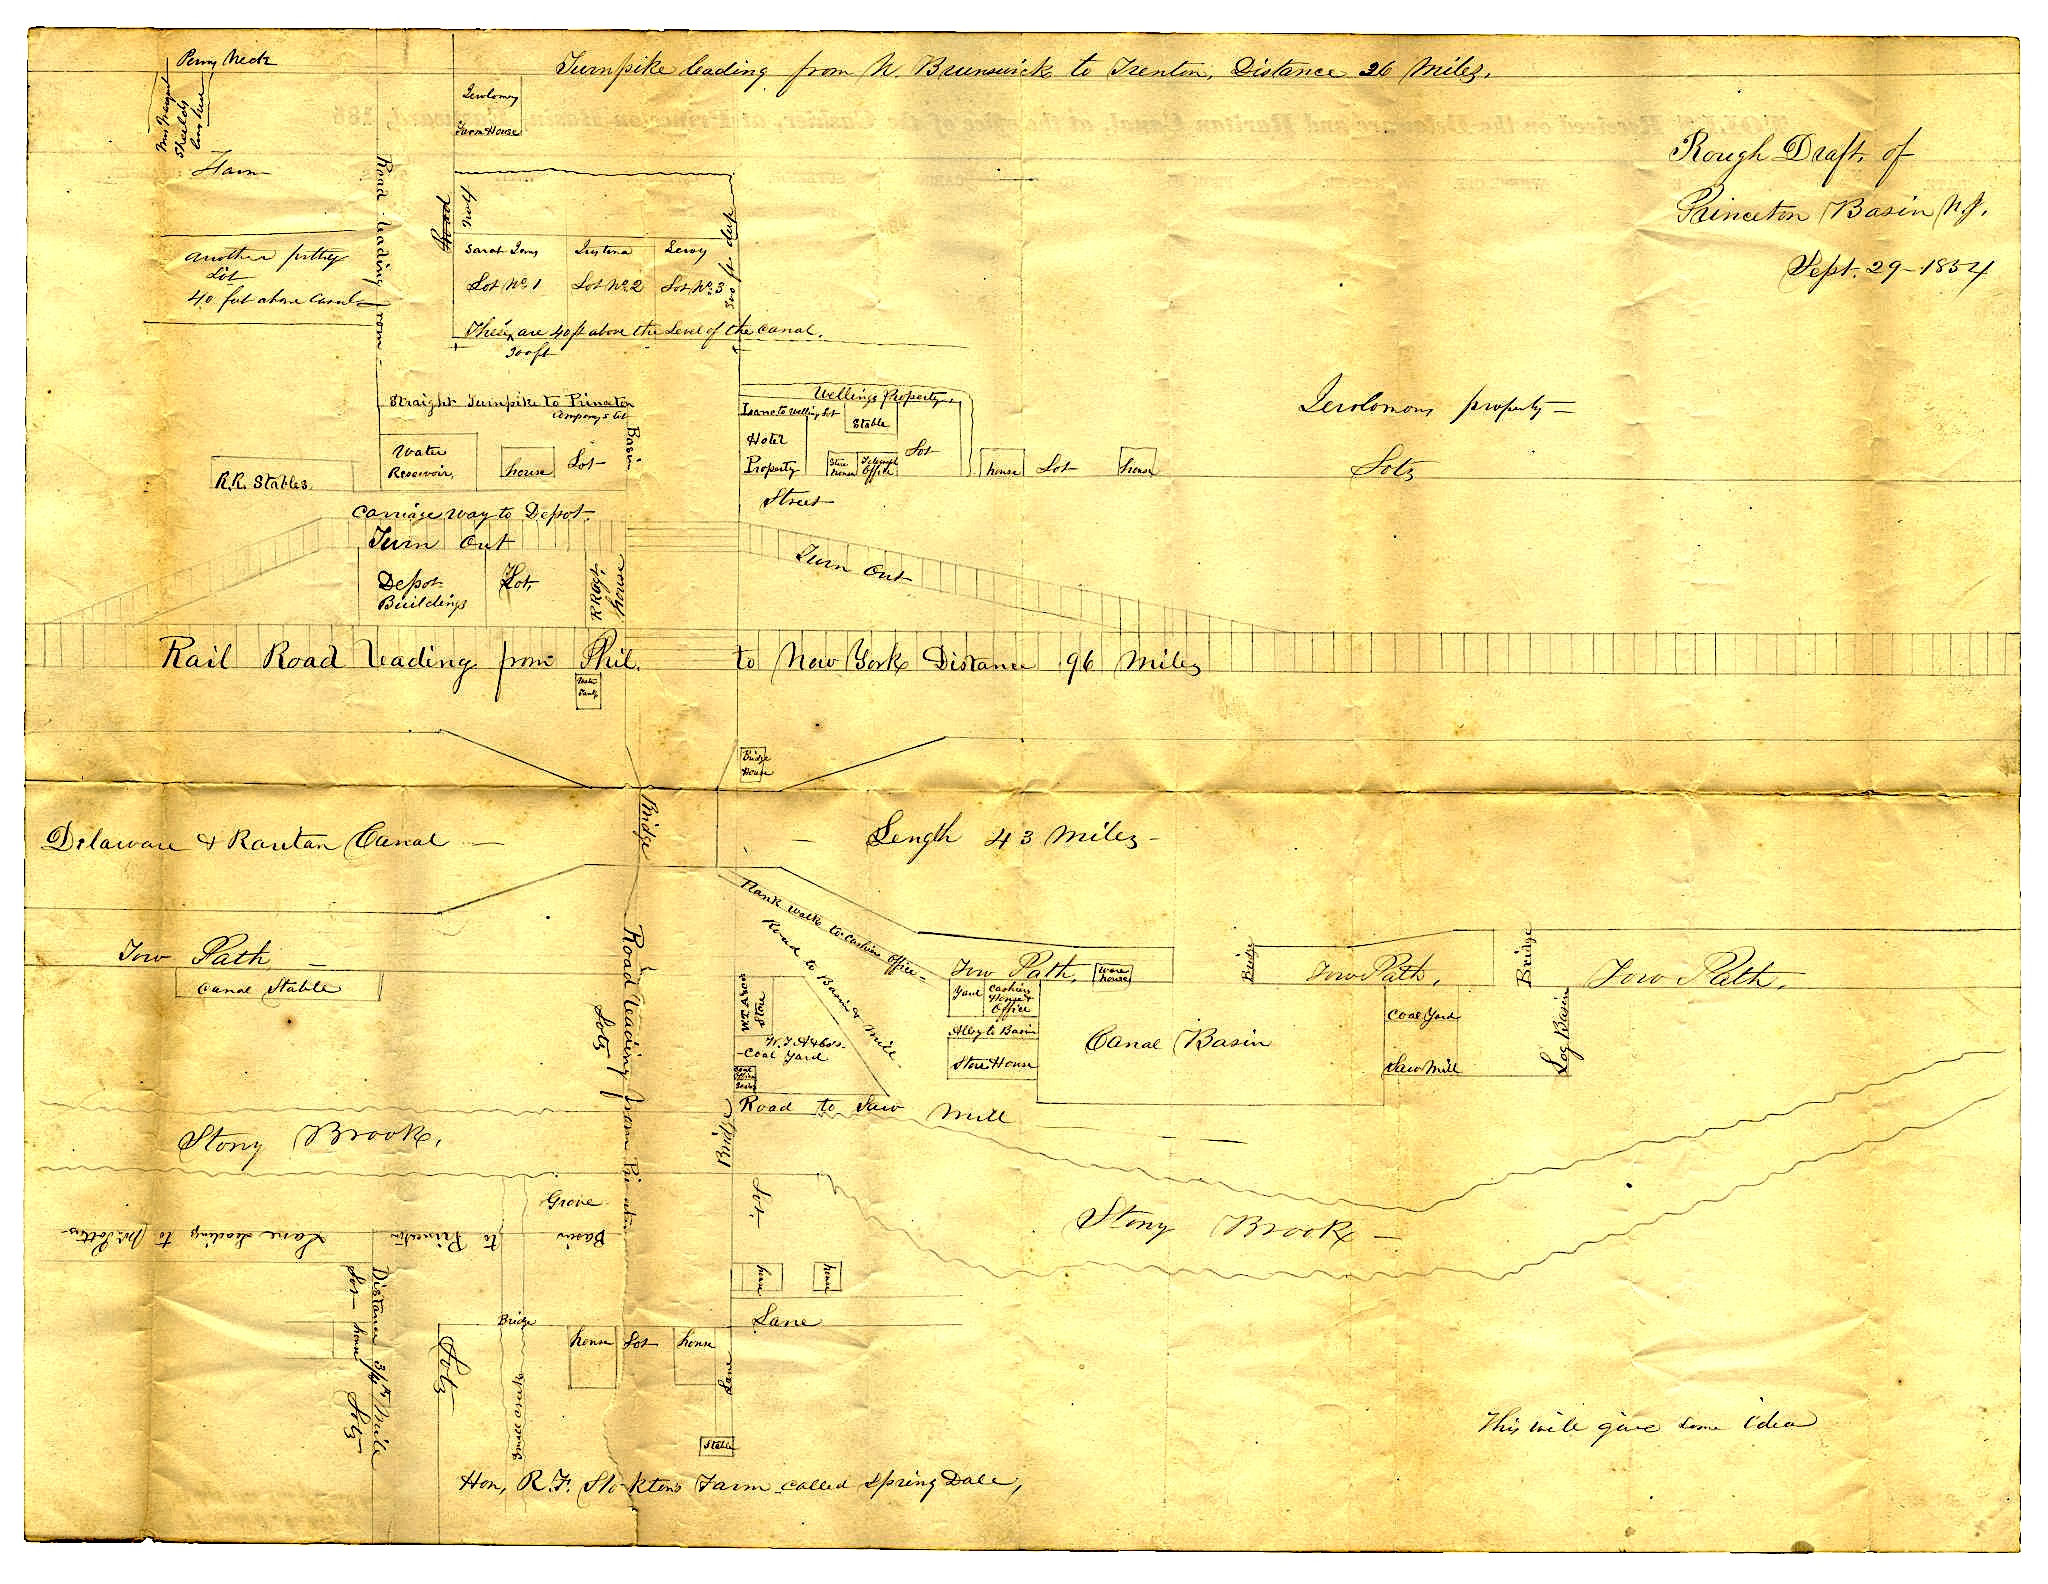 Turnpike leading from N. Brunswick to Trenton, Distance 26 Miles.
Rough Draft of
Princeton Basin N.J.
Sept. 29-1854
Penny Neck
Farm
Farm House
Road leading from
Road
No 4
another pretty
Lot
40 feet above Canal
Lot No. 1
Lot No. 2
Lot No. 3
300 ft deep
These are 40 ft above the Level of the Canal.
300 ft
Straight Turnpike to Princeton
Basin
Water
Reservoir,
house
Lot
R.R. Stables.
Wellings Property.
Hotel
Property
Stable
Store
house
Telegraph
Office
Lot
house
Lot
house
property
Lots
Street
Carriage way to Depot.
Turn Out
Turn Out
Depot
Buildings
Lot,
house
Rail Road leading from Phil. to New York Distance 96 Miles
Water
Tank
Bridge
House
Bridge
Delaware & Raritan Canal — — Length 43 Miles -
Plank walk to Cashiers Office
Road to Basin & Mill
Tow Path —
Canal Stable
Tow Path,
Ware
house
Bridge
Tow Path,
Bridge
Tow Path,
Yard
Cashiers
House &
Office
Alley to Basin
Store House
Canal Basin
Coal Yard
Saw Mill
Log Basin
Store
Coal Yard
Road to Saw Mill
Road leading from Princeton
Lots
Bridge
Stony Brook,
Stony Brook —
Grove
Lane leading to Mr. Potters
to Princeton Basin
Lot
house
house
Lane
Distance 3/4 th Mile
Lot
house
Lots
Bridge
Lots
Small creek
house
Lot
house
Lane
Stable
Hon, R.F. Stocktons Farm called Spring Dale,
This will give some idea